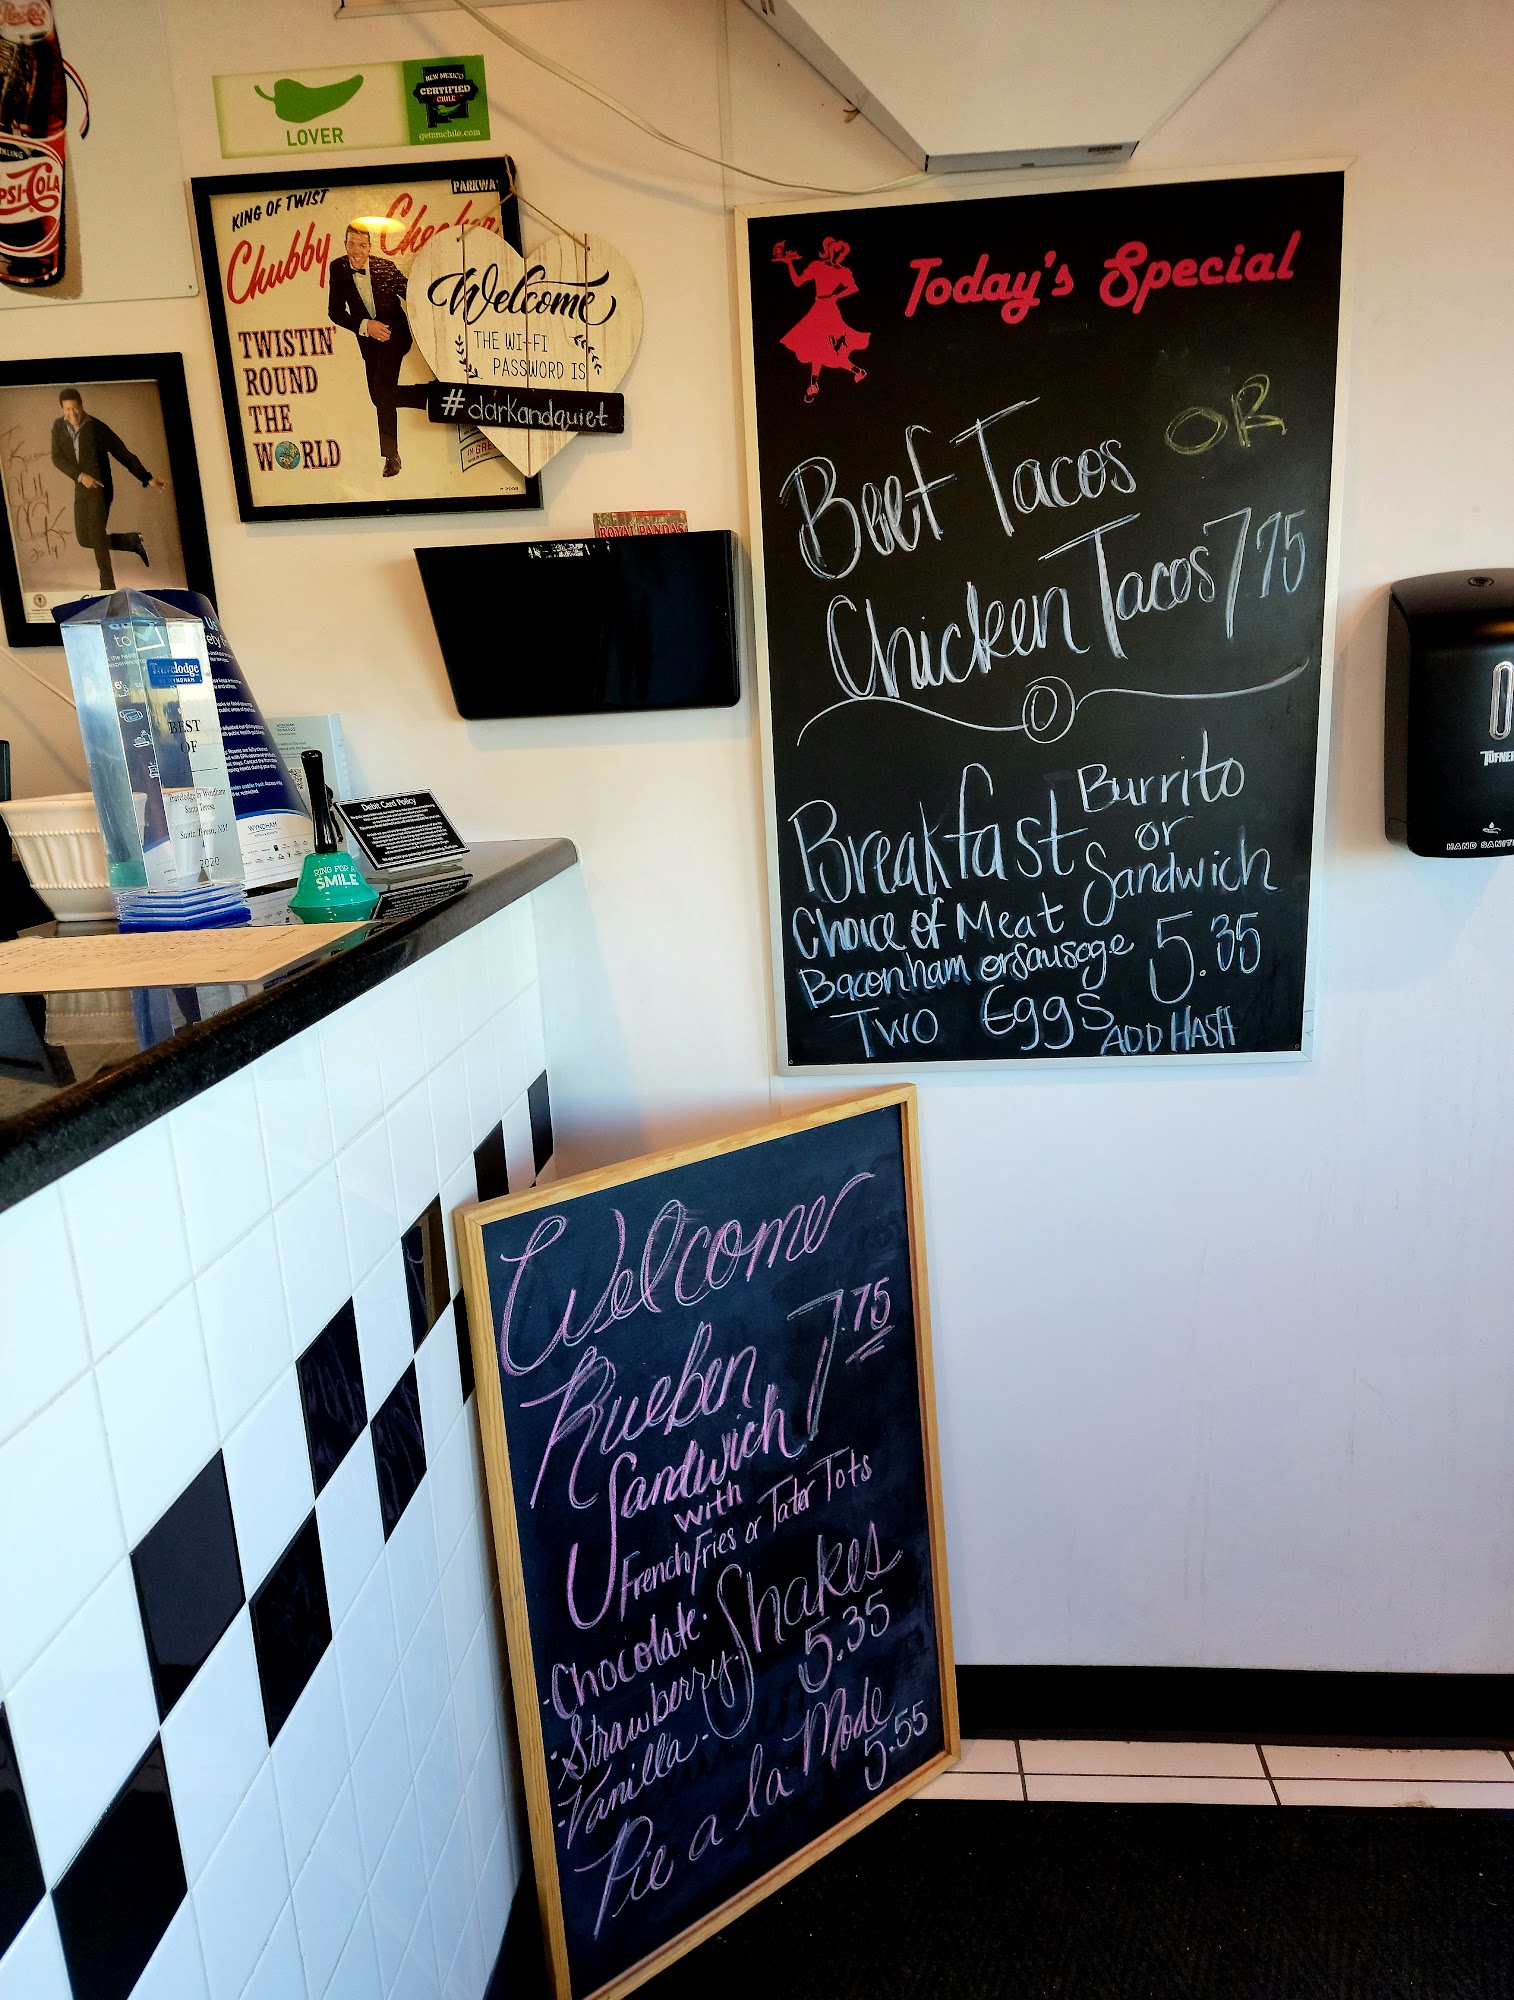 PSI-COLA
LOVER
NEW MEXICO
CERTIFIED
CHILE
getnmchile.com
KING OF TWIST
PARKWA
Chubby Checker
TWISTIN'
ROUND
THE
WORLD
Welcome
THE WI-FI
PASSWORD IS
#darkandquiet
ROYAL PANDAS
Today's Special
Beef Tacos OR
Chicken Tacos 7.75
Breakfast Burrito
or
Sandwich
Choice of Meat
Bacon ham or sausage 5.35
Two Eggs ADD HASH
Travelodge
BY WYNDHAM
BEST
OF
Travelodge by Wyndham
Santa Rosa
2020
WYNDHAM
RING FOR A
SMILE
Debit Card Policy
HAND SANIT
Welcome
Rueben 7.75
Sandwich
with
French Fries or Tater Tots
-Chocolate-
-Strawberry- Shakes
-Vanilla- 5.35
Pie a la Mode
5.55